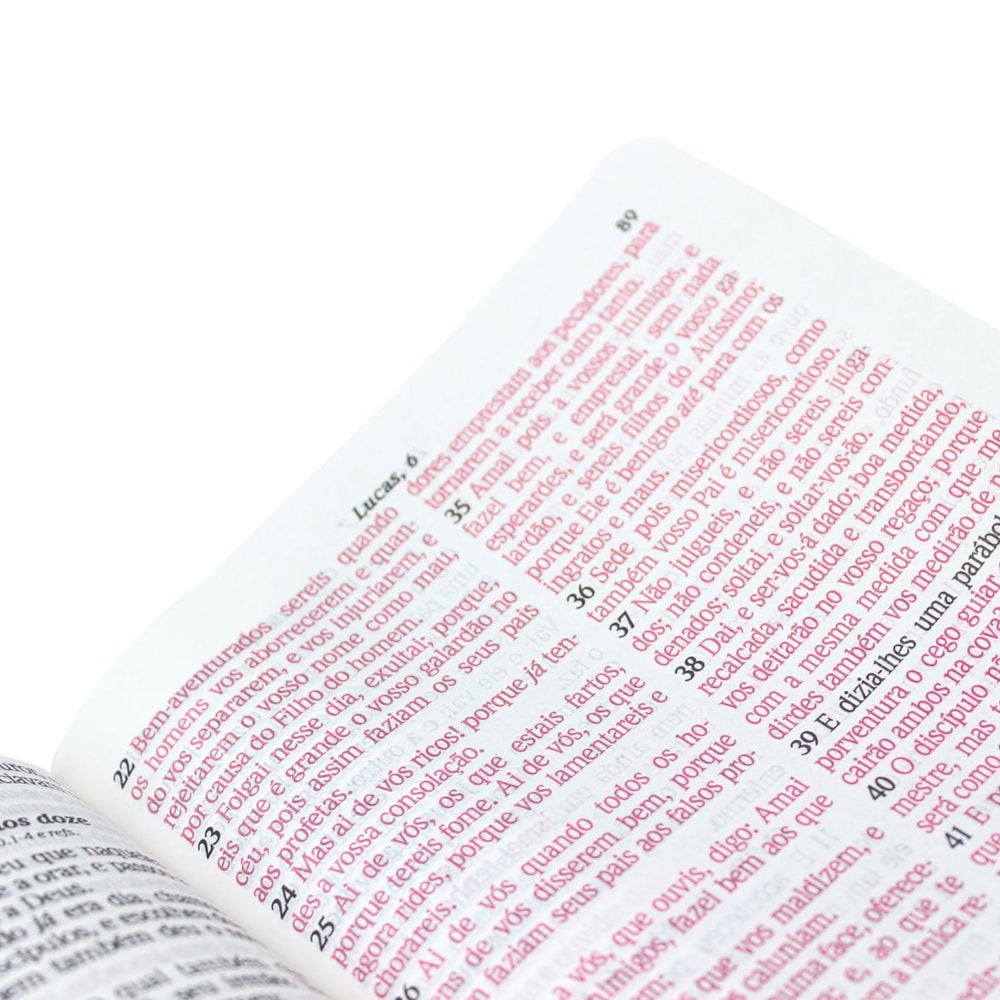 dos doze
Lucas, 6
89
22 Bem-aventurados sereis quando
os homens vos aborrecerem e quan-
do vos separarem, e vos injuriarem, e
rejeitarem o vosso nome como mau,
por causa do Filho do homem.
23 Folgai nesse dia, exultai; porque,
eis que é grande o vosso galardão no
céu, pois assim faziam os seus pais
aos profetas.
24 Mas ai de vós, ricos! porque já ten-
des a vossa consolação.
25 Ai de vós, os que estais fartos,
porque tereis fome. Ai de vós, os que
agora rides, porque vos lamentareis e
chorareis.
26 Ai de vós quando todos os ho-
mens de vós disserem bem, porque
assim faziam seus pais aos falsos pro-
a vós, que ouvis, digo: Amai
inimigos, fazei bem aos que
que vos maldizem, e
caluniam.
uma face, oferece-
e, ao que te
a túnica re-
dores emprestam aos pecadores, para
tornarem a receber outro tanto.
35 Amai pois a vossos inimigos, e
fazei bem, e emprestai, sem nada
esperardes, e será grande o vosso ga-
lardão, e sereis filhos do Altíssimo;
porque Ele é benigno até para com os
ingratos e maus.
36 Sede pois misericordiosos, como
também vosso Pai é misericordioso.
37 Não julgueis, e não sereis julga-
dos; não condeneis, e não sereis con-
denados; soltai, e soltar-vos-ão.
38 Dai, e ser-vos-á dado; boa medida,
recalcada, sacudida e transbordando,
vos deitarão no vosso regaço; porque
com a mesma medida com que me-
dirdes também vos medirão de
39 E dizia-lhes uma parábol
porventura o cego guiar
cairão ambos na cova
40 O discípulo nã
mestre, mas
será como
41 E